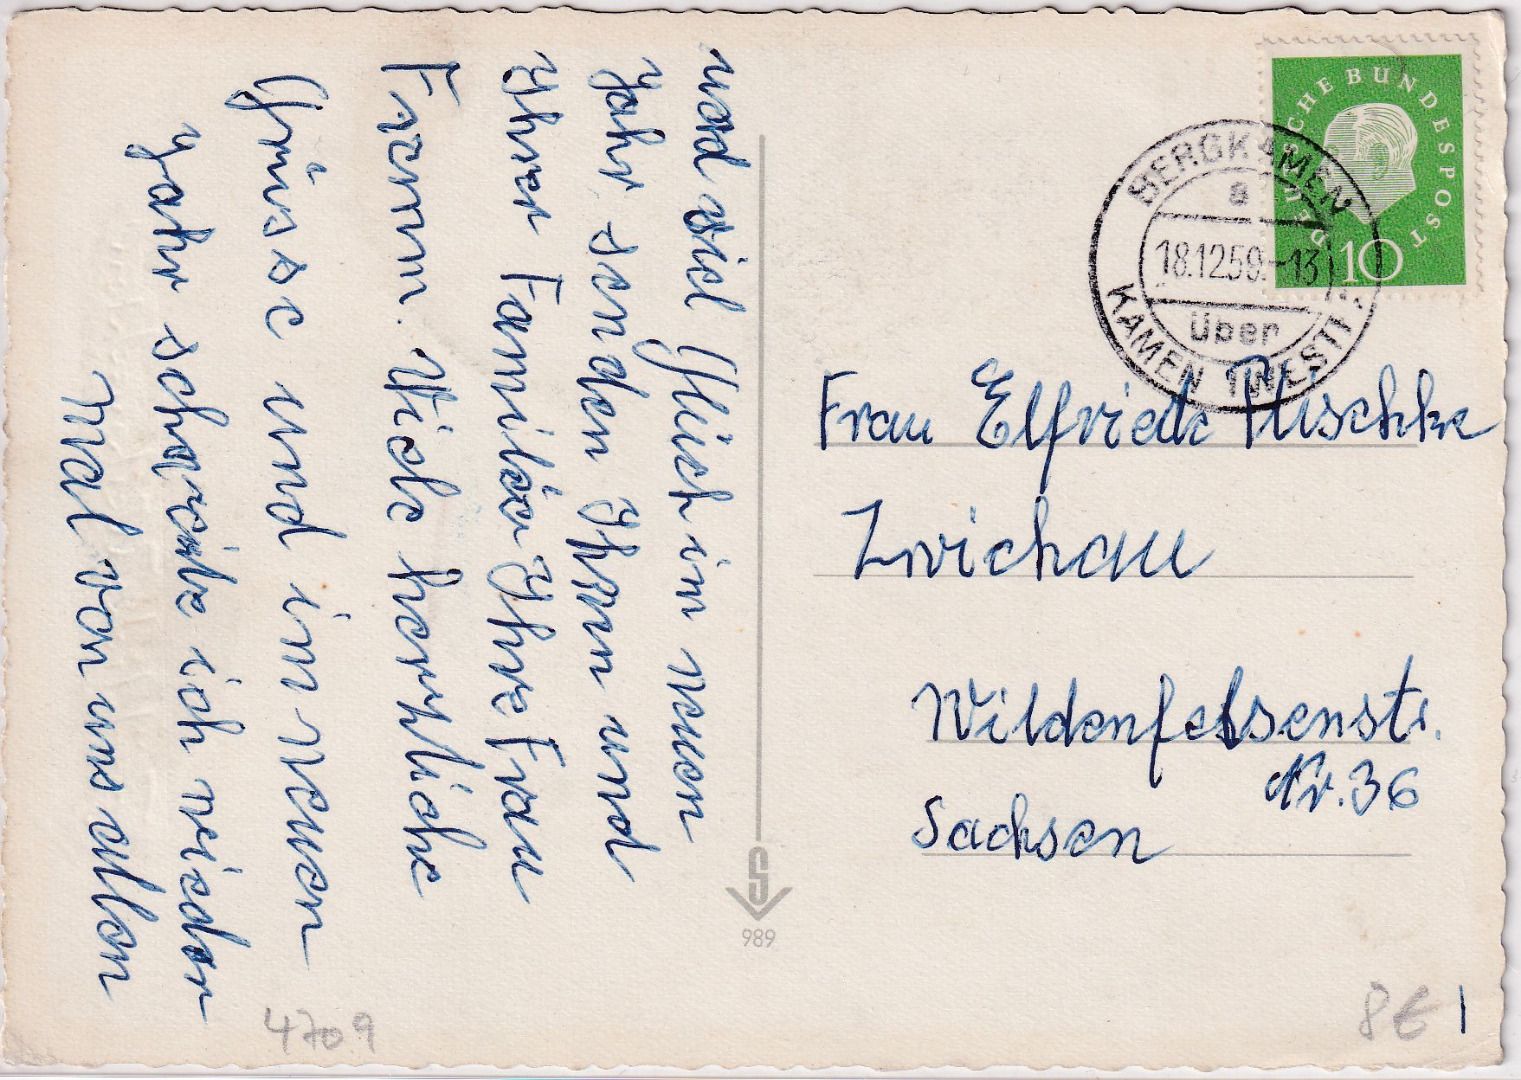 und viel Glück im neuen
Jahr senden Ihnen und
Ihrer Familia Ihre Frau
Fromm. Viele herzliche
Grüsse und im neuen
Jahr schreibe ich wieder
mal von uns allen
DEUTSCHE BUNDESPOST
10
BERGKAMEN
a
18.12.59.-13
über
KAMEN (WESTF.
Frau Elfriede Plischke
Zwickau
Wildenfelsenstr.
Nr. 36
Sachsen
S
989
4709
8€